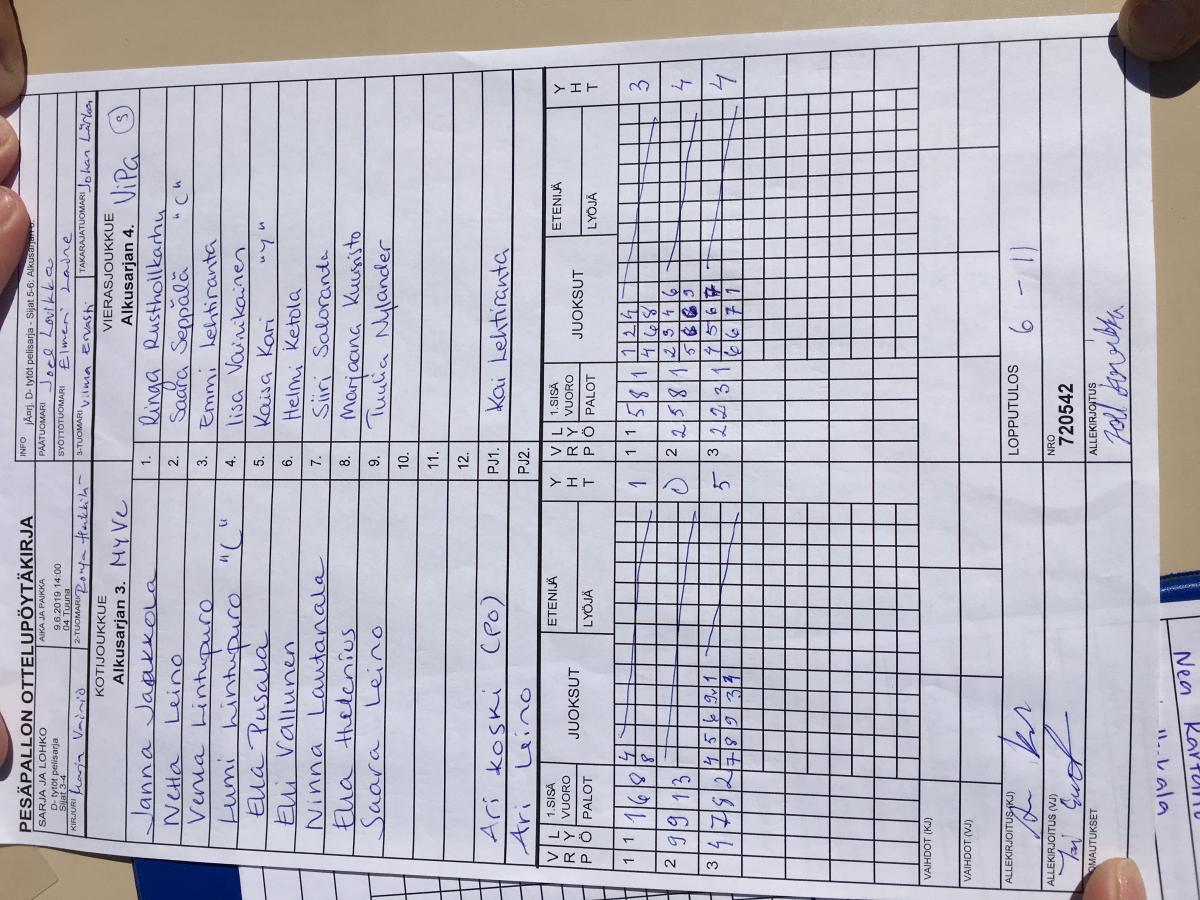 PESÄPALLON OTTELUPÖYTÄKIRJA
SARJA JA LOHKO
D- tytöt pelisarja
Sijat 3-4
AIKA JA PAIKKA
9.6.2019 14:00
04 Tuuna
INFO jÄnrj. D- tytöt pelisarja - Sijat 5-6: Alkusarjan 6.
PÄÄTUOMARI Joel Lovikka
SYÖTTÖTUOMARI Elmeri Laine
KIRJURI
2-TUOMARI
3-TUOMARI Vilma Ervasti
TAKARAJATUOMARI Johan
KOTIJOUKKUE
Alkusarjan 3. MyVe
VIERASJOUKKUE
Alkusarjan 4. ViPa S
Janna Jaakkola 1. Rustholkarhu
Netta Leino 2. Saara Seppälä "C"
Venla Lintupuro 3. Emmi Lehtiranta
Lumi Lintupuro "C" 4. Iisa Vainikainen
Ella Pusala 5. Kaisa Kari "y"
Elli Vallunen 6. Helmi Ketola
Ninna Lautanala 7. Siiri Saloranda
Ella Helenius 8. Marjaana Kuusisto
Saara Leino 9. Tuulia Nylander
10.
11.
12.
Ari Koski (PO) PJ1. Kai Lehtiranta
Ari Leino PJ2.
VRP LYÖ 1.SISÄ VUORO PALOT JUOKSUT ETENIJÄ LYÖJÄ YHT VRP LYÖ 1.SISÄ VUORO PALOT JUOKSUT ETENIJÄ LYÖJÄ YHT
1 1 1 6 8 4 1 1 1 5 8 1 1 2 4 3
8 4 6 8
2 9 9 1 3 0 2 2 5 8 1 2 3 4 6 4
3 4 7 8 2 4 5 6 9 1 5 3 2 2 3 1 4 5 6 7 4
7 8 9 3 6 6 7 1
VAIHDOT (KJ)
VAIHDOT (VJ)
ALLEKIRJOITUS (KJ)
LOPPUTULOS 6 - 11
ALLEKIRJOITUS (VJ)
NRO
720542
HUOMAUTUKSET
ALLEKIRJOITUS